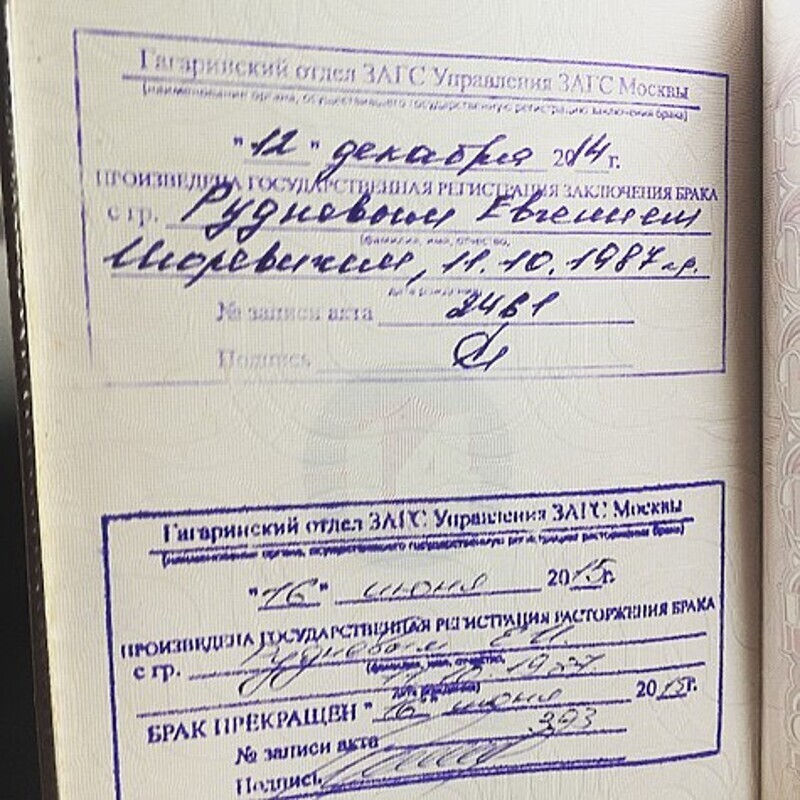 Гагаринский отдел ЗАГС Управления ЗАГС Москвы
(наименование органа, осуществившего государственную регистрацию заключения брака)
"12" декабря 2014 г.
ПРОИЗВЕДЕНА ГОСУДАРСТВЕННАЯ РЕГИСТРАЦИЯ ЗАКЛЮЧЕНИЯ БРАКА
с гр. Рудновым Евгением
(фамилия, имя, отчество,
Игоревичем, 11.10.1987 г.р.
дата рождения)
№ записи акта 2461
Подпись
Гагаринский отдел ЗАГС Управления ЗАГС Москвы
(наименование органа, осуществившего государственную регистрацию расторжения брака)
"16" июня 2015г.
ПРОИЗВЕДЕНА ГОСУДАРСТВЕННАЯ РЕГИСТРАЦИЯ РАСТОРЖЕНИЯ БРАКА
с гр. Рудновым Е.И.
(фамилия, имя, отчество,
11.10.1987
дата рождения)
БРАК ПРЕКРАЩЕН "16" июня 2015г.
№ записи акта 393
Подпись